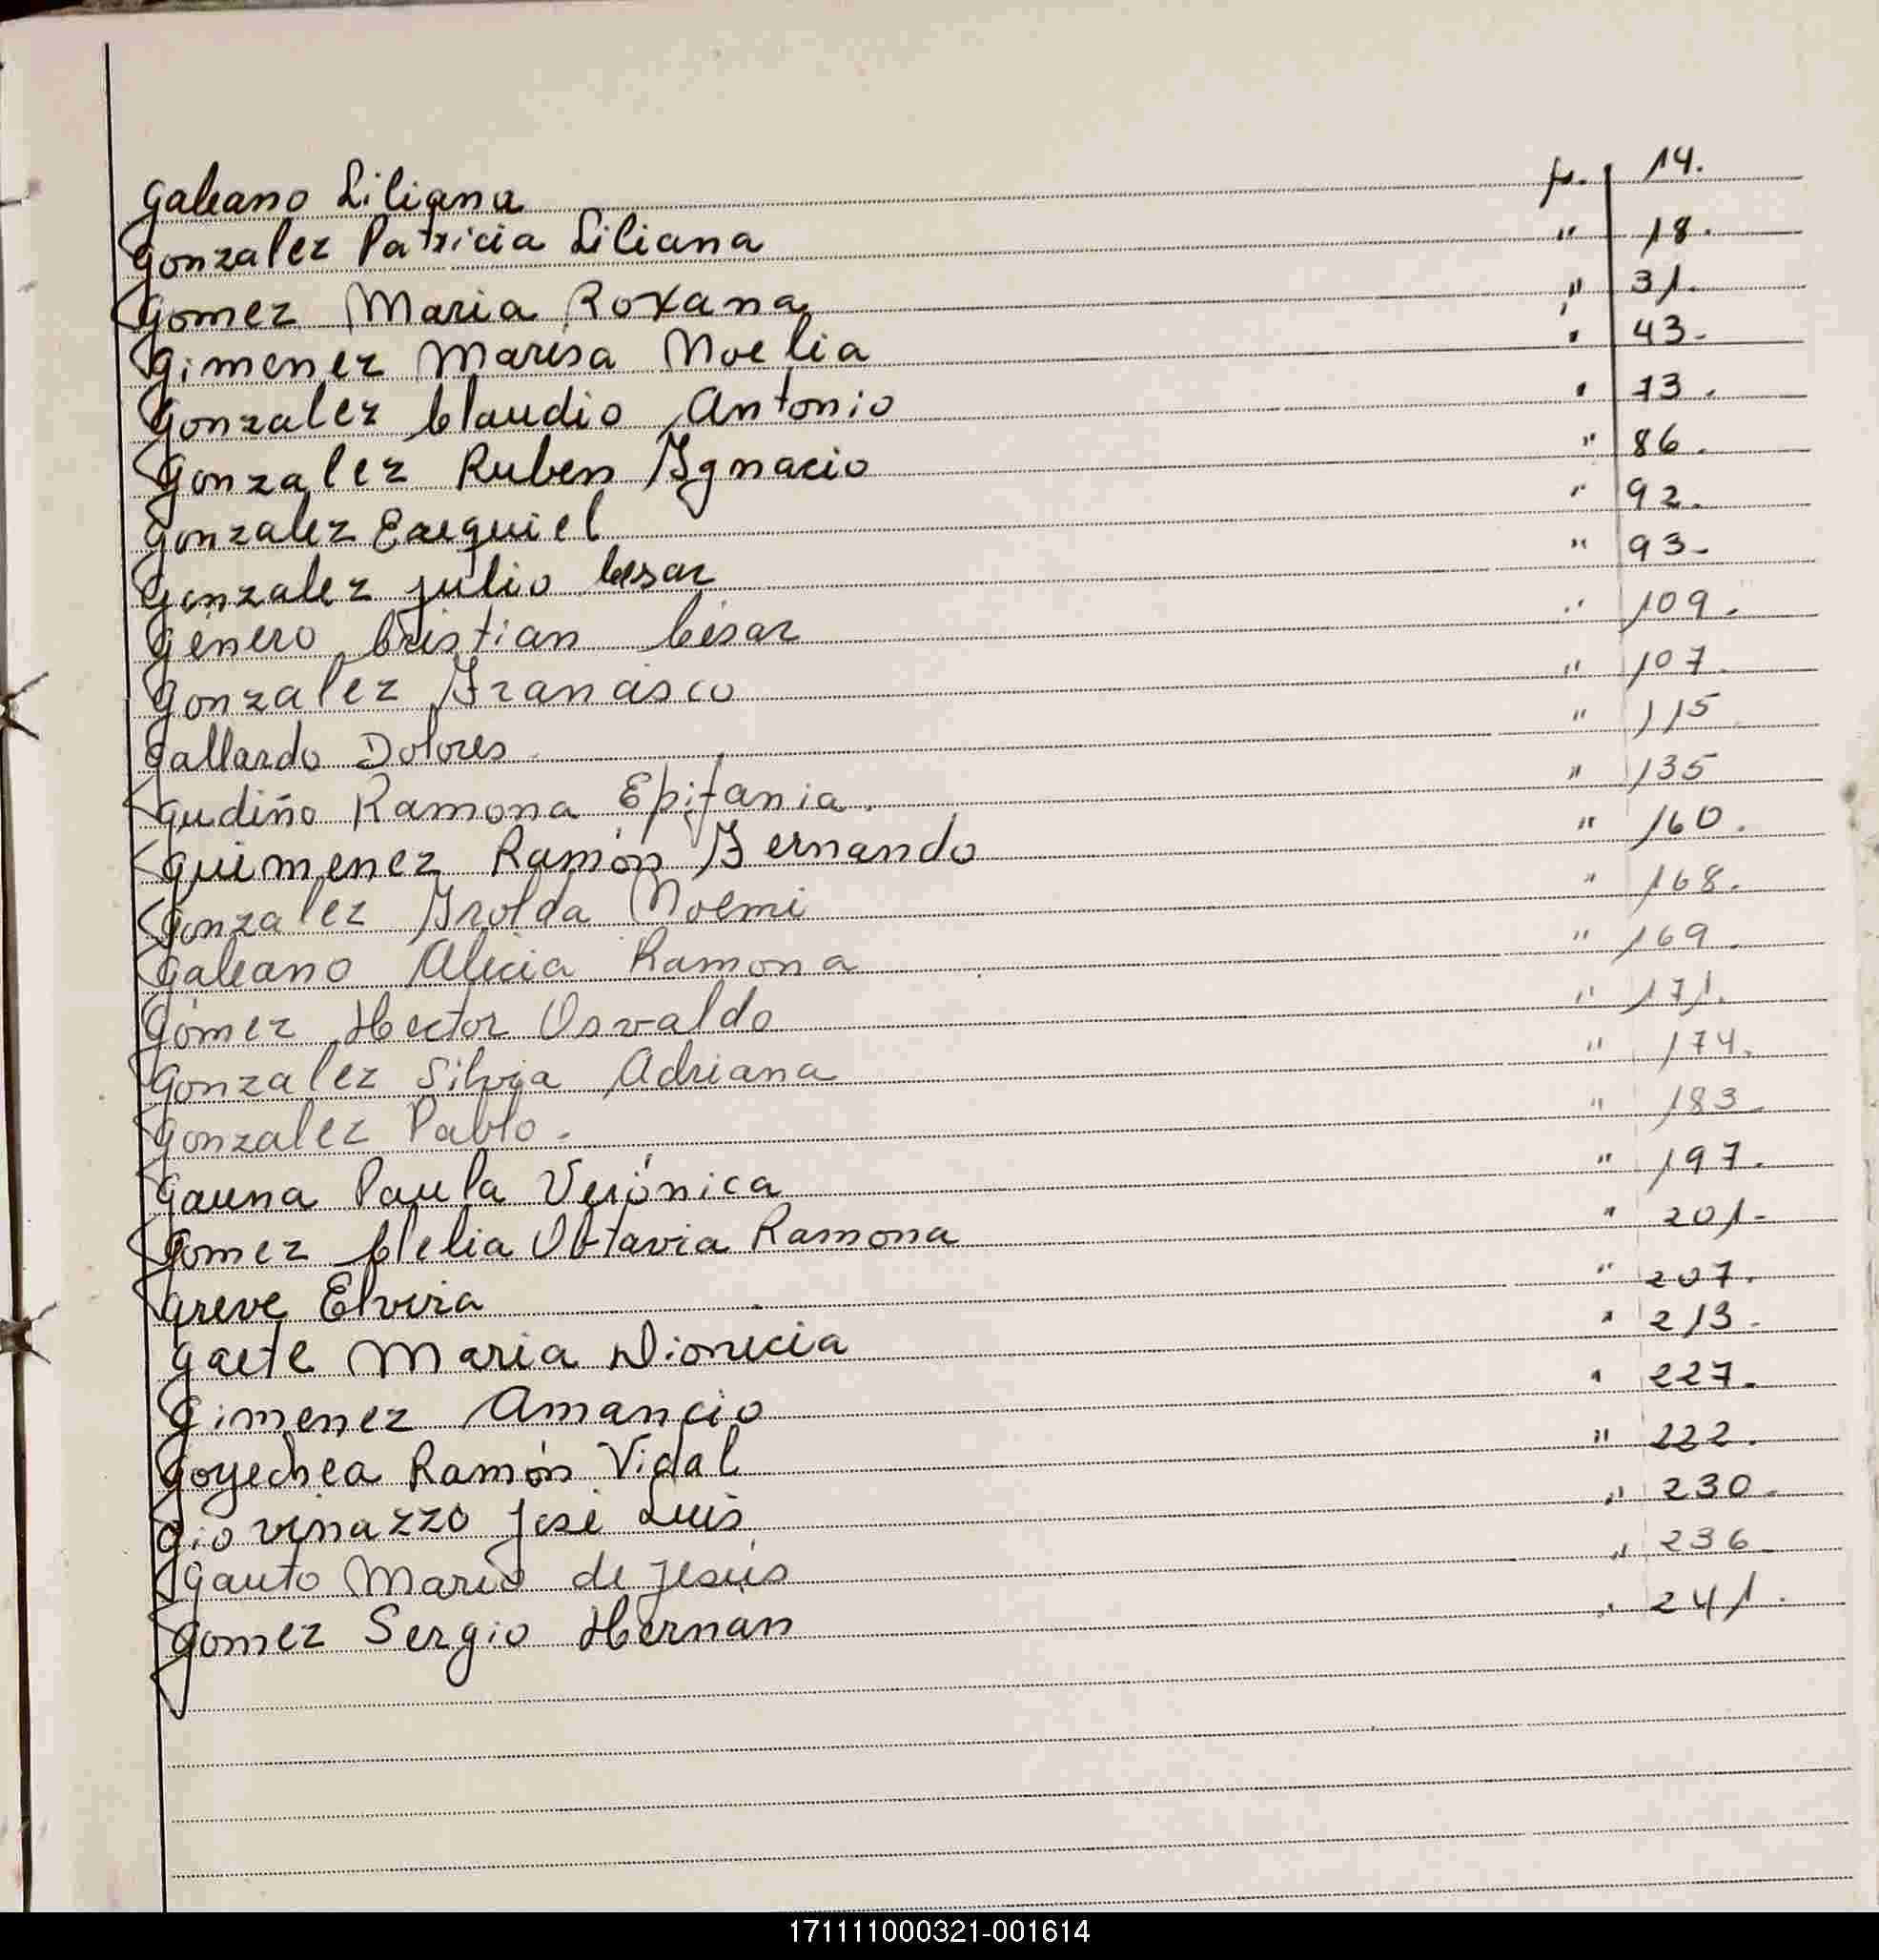 Galeano Liliana p. 14.
Gonzalez Patricia Liliana " 18.
Gomez Maria Roxana " 31.
Gimenez Marisa Noelia " 43.
Gonzalez Claudio Antonio " 73.
Gonzalez Ruben Ygnacio " 86.
Gonzalez Ezequiel " 92.
Gonzalez Julio Cesar " 93.
Género Cristian César " 109.
Gonzalez Francisco " 107.
Gallardo Dolores " 115
Gudiño Ramona Epifania. " 135
Guimenez Ramón Fernando " 160.
Gonzalez Noemi " 168.
Galeano Alicia Ramona " 169.
Gómez Hector Osvaldo " 171.
Gonzalez Silvia Adriana " 174.
Gonzalez Pablo. " 183.
Gauna Paula Verónica " 197.
Gomez Clelia Obtavia Ramona " 201.
Greve Elvira " 207.
Gaete Maria Dionicia " 213.
Gimenez Amancio " 227.
Goyechea Ramón Vidal " 222.
Giovinazzo José Luis " 230.
Gauto Mario de Jesús " 236.
Gomez Sergio Hernan " 241.
171111000321-001614